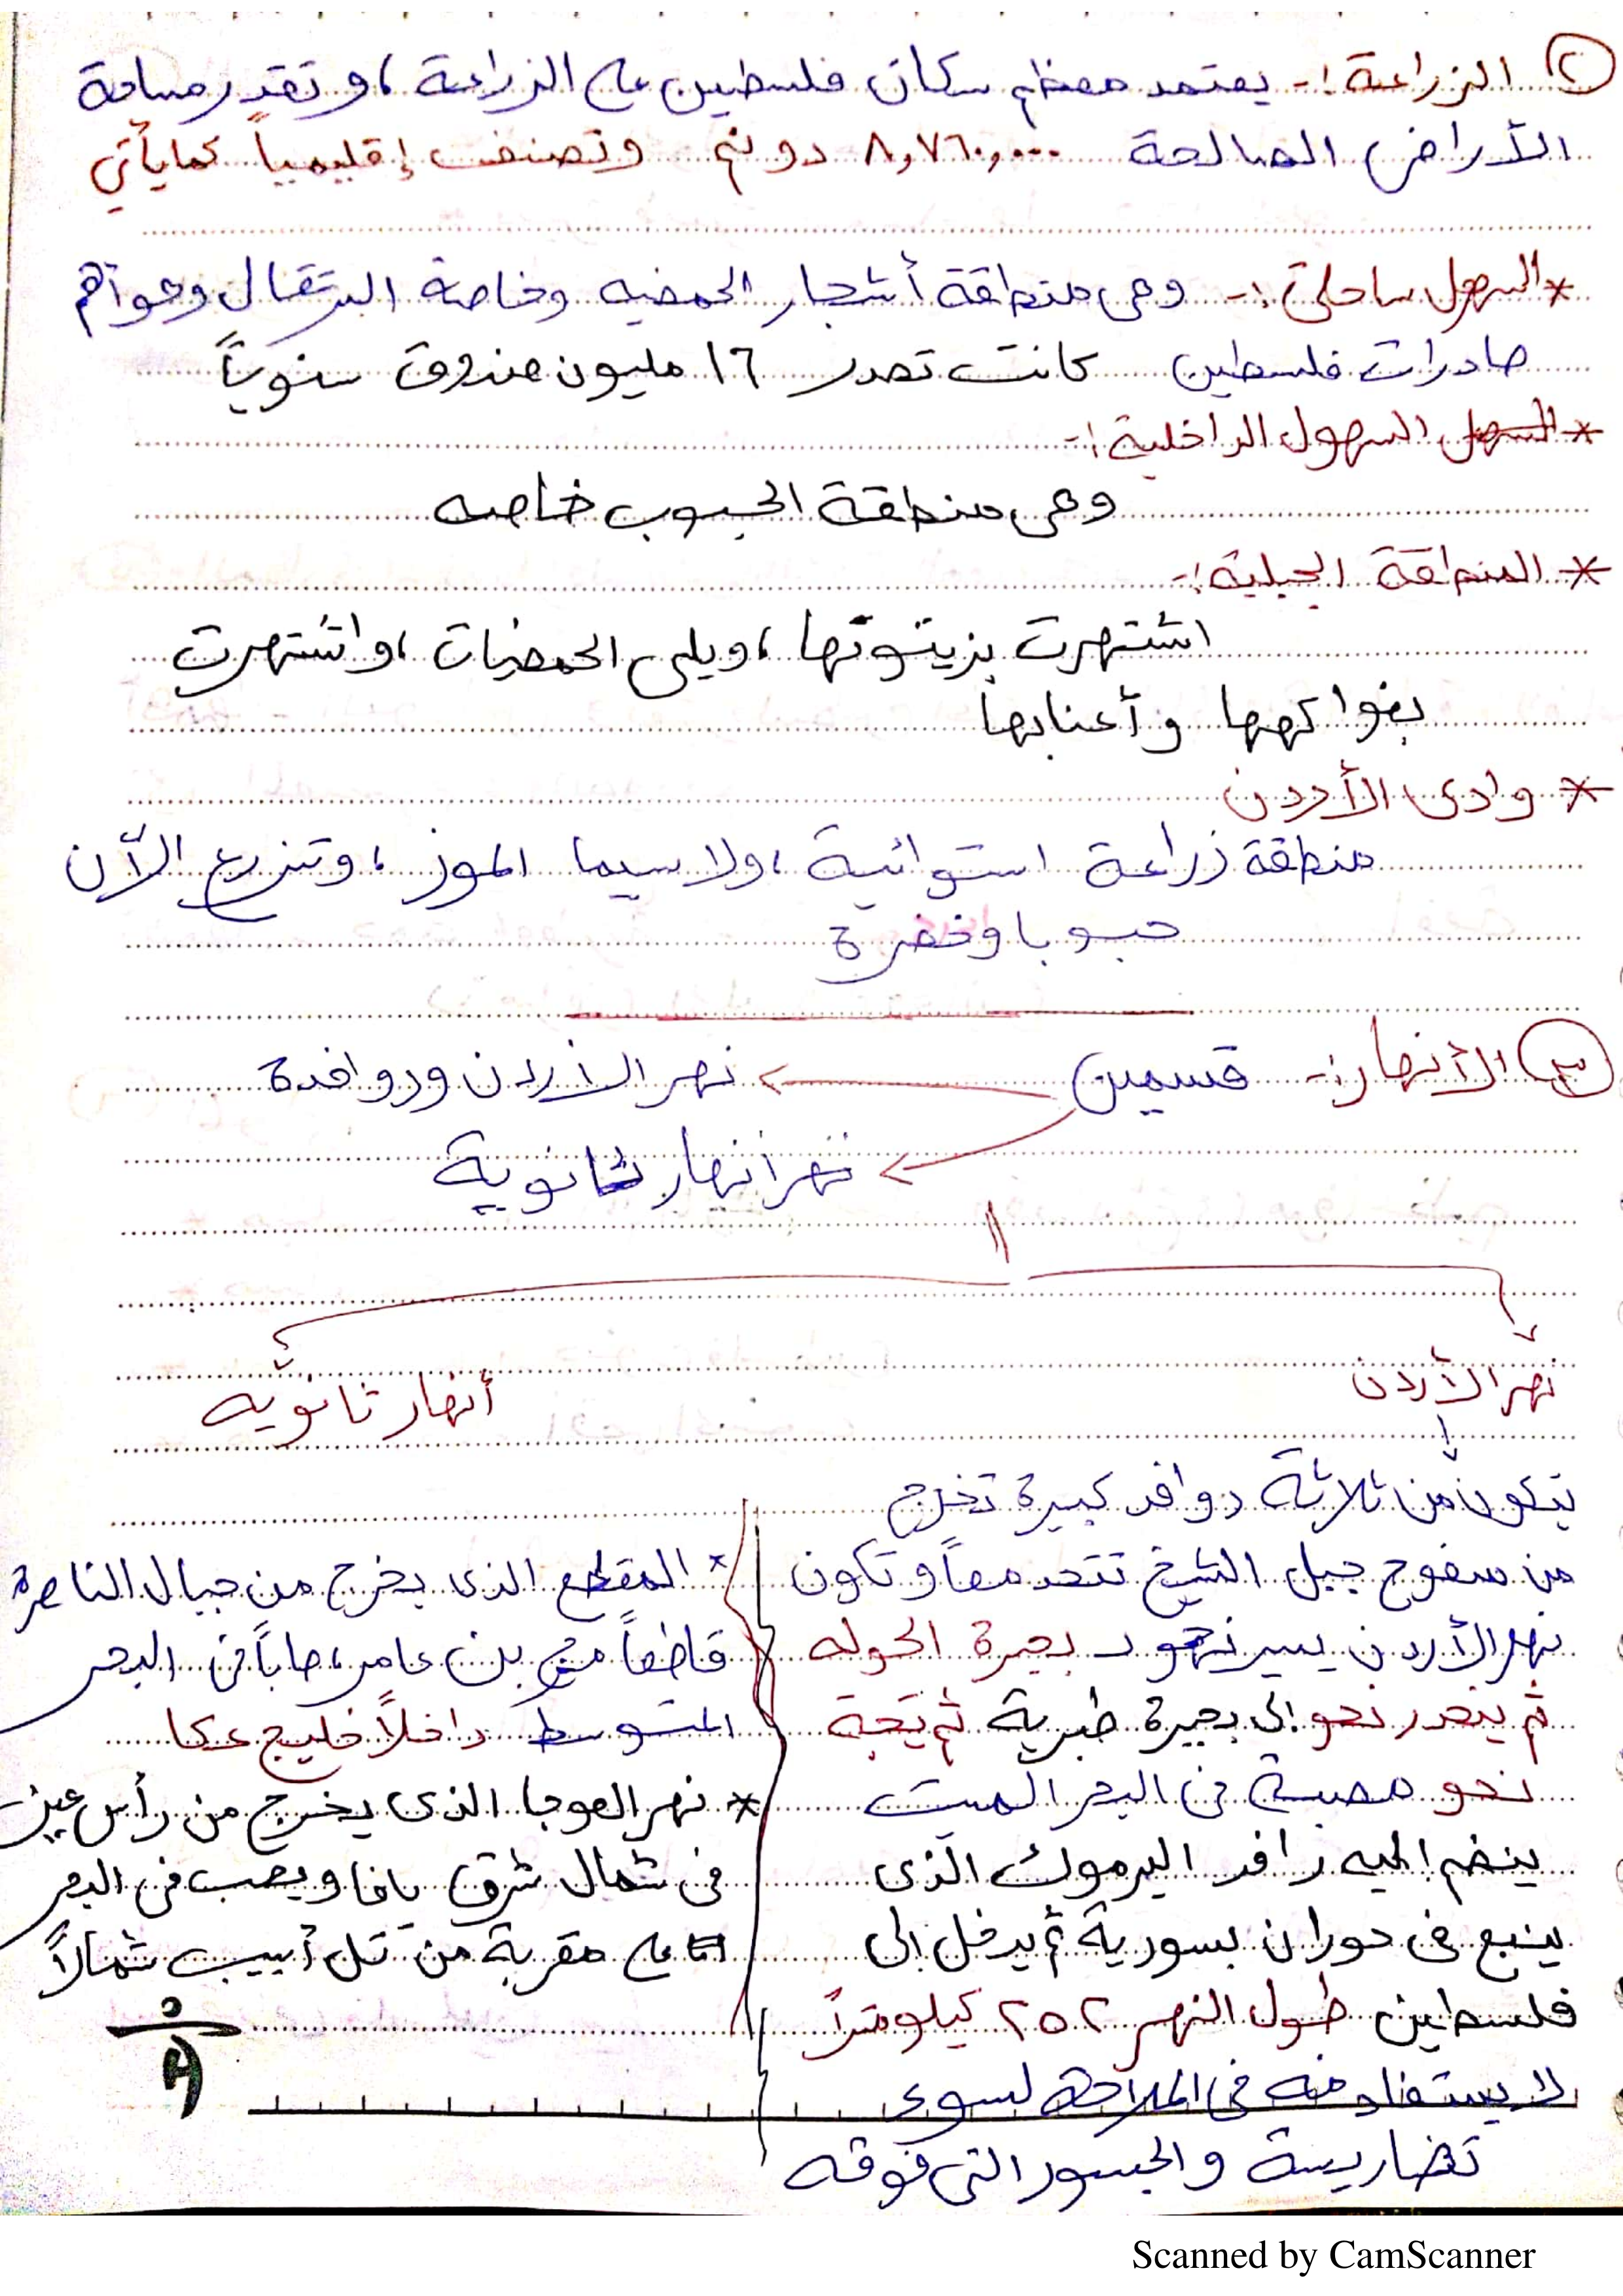 ٢ الزراعة :- يعتمد معظم سكان فلسطين على الزراعة ، و تقدر مساحة
الأراضى الصالحة ٨,٧٦٠,٠٠٠ دونم وتصنف إقليمياً كما يأتي
* السهل ساحلى :- وهى منطقة أشجار الحمضيه وخاصة البرتقال وهو أهم
صادرات فلسطين كانت تصدر ١٦ مليون صندوق سنوياً
* السهل السهول الداخلية :-
وهى منطقة الحبوب خاصه
* المنطقة الجبلية :-
اشتهرت بزيتونها ، ويلى الحمضيات ، واشتهرت
بفواكهها وأعنابها
* وادى الأردن
منطقة زراعة استوائية ، ولا سيما الموز ، وتزرع الآن
حبوبا وخضرة
٣ الأنهار :- قسمين
نهر الأردن وروافدة
نهر انهار ثانوية
نهر الأردن
يتكون من ثلاثة روافد كبيرة تخرج
من سفوح جبل الشيخ تتحد معاً و تكون
نهر الأردن يسير نحو بحيرة الحوله
ثم ينحدر نحو إلى بحيرة طبرية ثم يتجة
نحو مصبة فى البحر الميت
ينضم اليه رافد اليرموك الذى
ينبع فى حوران بسورية ثم يدخل إلى
فلسطين طول النهر ٢٥٢ كيلو متراً
لا يستفاد منه فى الملاحة لسوء
تضاريسة والجسور التى فوقه
أنهار ثانويه
* المقطع الذى يخرج من جبال الناصرة
قاطعاً مرج بن عامر ، صاباً فى البحر
المتوسط داخلاً خليج عكا
* نهر العوجا الذى يخرج من رأس عين
فى شمال شرق يافا ويصب فى البحر
على مقربة من تل أبيب شمالاً
Scanned by CamScanner